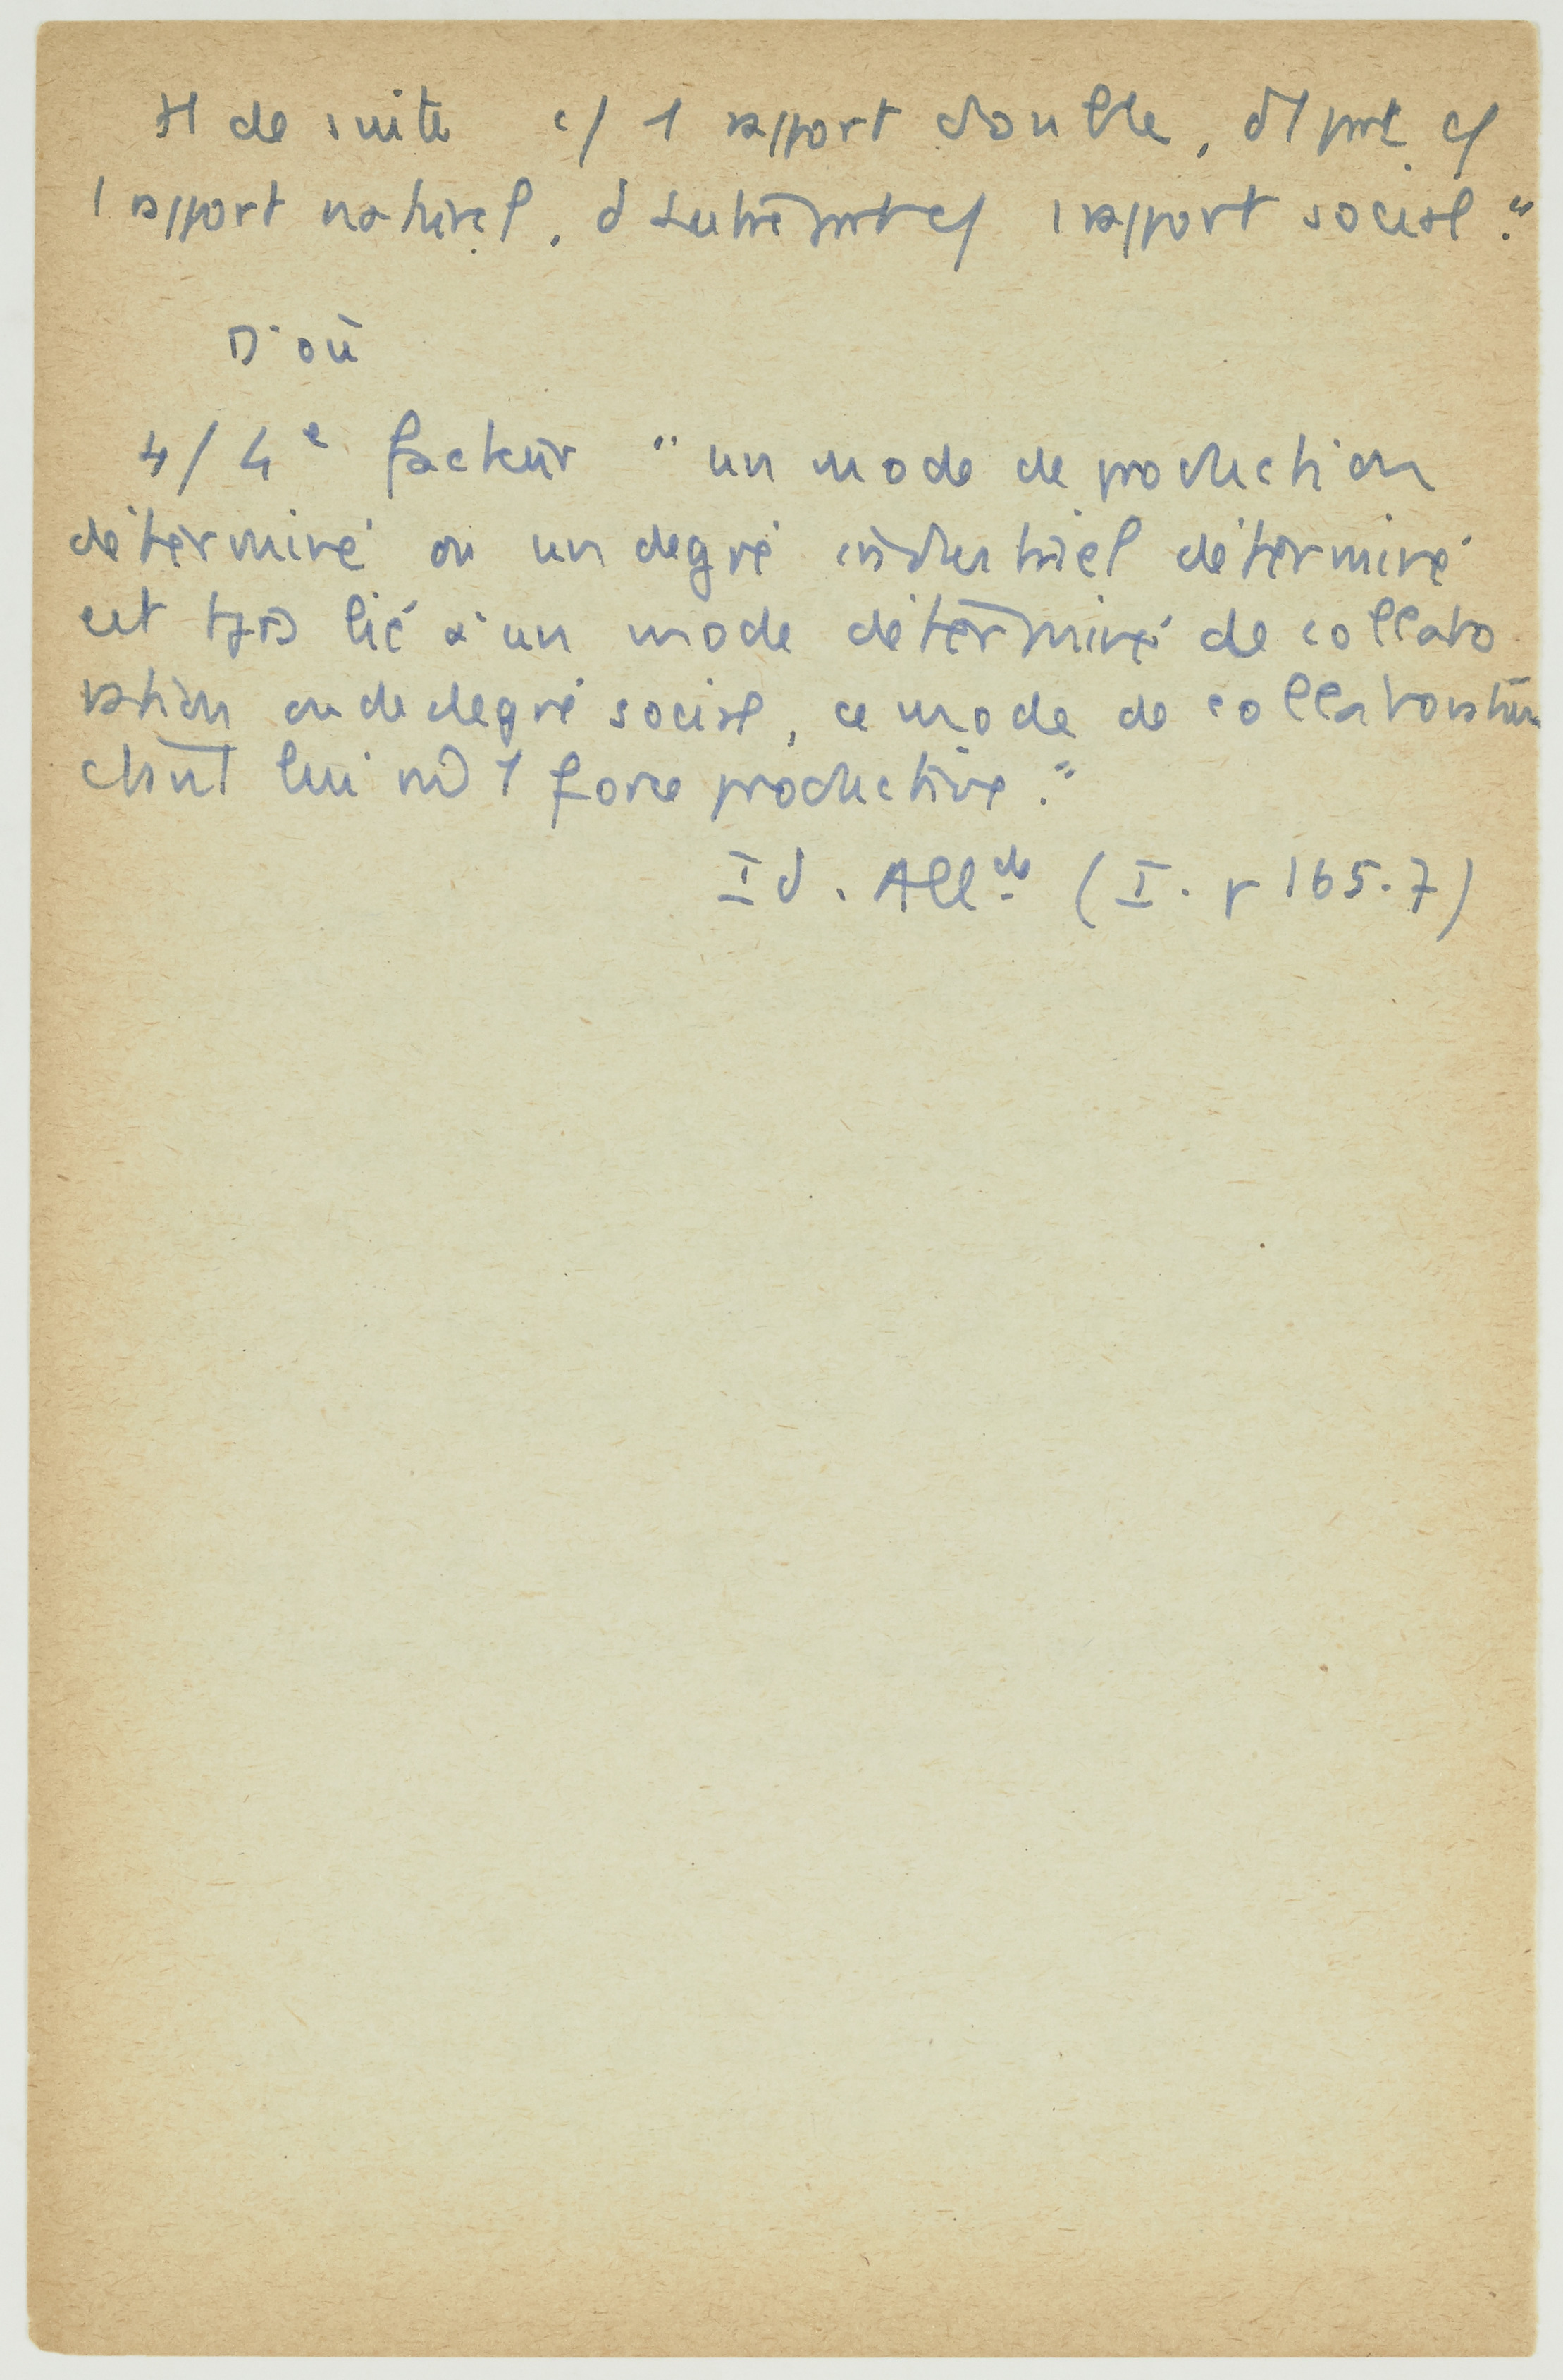 tt de suite c/ 1 rapport double, d'1 part c/
1 rapport naturel, d'autre part c/ 1 rapport social."
D'où
4/ 4e facteur "un mode de production
déterminé ou un degré industriel déterminé
est tjrs lié à un mode déterminé de collabo
ration ou de degré social, ce mode de collaboration
étant lui m̂ 1 force productive."
Id. Allde (I. p 165-7)